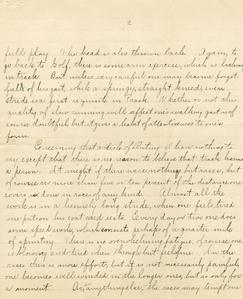 2
full play. The head is also thrown back. Again, to
go back to Golf, there is some arm exercise, which is lacking
in track. But unless very careful one may become forget
full of his gait, while a springy, straight kneed, even
stride is a first requisite in Track. Whether or not this
quality of slow running will affect one's walking gait is of
course doubtful but it gives a habit of attentiveness to one's
form.
Concerning that article of Outing I have nothing to
say except that there is no reason to believe that track harms
a person. It might if there were nothing but races, but of
course are not more than five or ten percent of the distance one
covers is done in races of any kind. Almost all the
work is in a leisurely long stride, when one feels tired
one puts on his coat and rests. Every day or two one does
some speed work, which consists perhaps of a quarter mile
of sprinting. There is no overwhelming fatigue, of course one
is blowing and tired when through but feels fine. In the
races there is more effort, but it is not necessarily painful
one becomes well winded in the longer ones, but is only for
a moment. As anything else, the races may tempt one